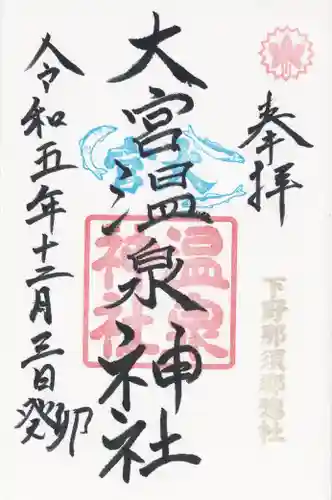 奉拝
下野那須郷総社
大宮温泉神社
温泉
神社
令和五年十二月三日癸卯